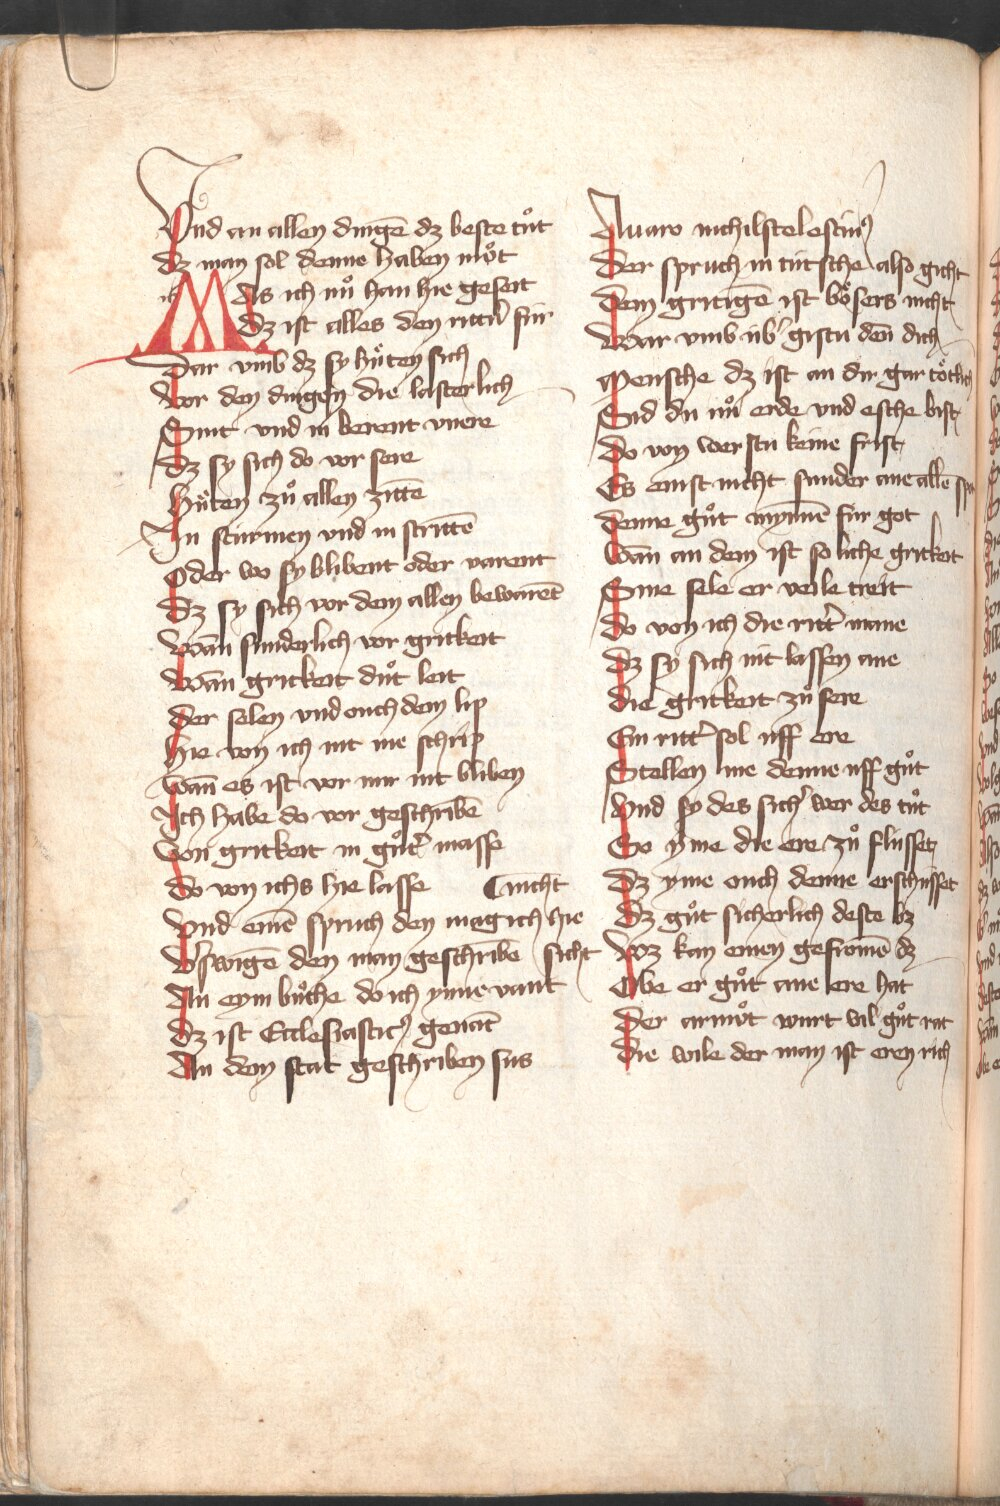 Vnd an allen dingē dz beste tuͦt
Dz man sol denne haben muͦt
Als ich nuͦ han hie geseit
Dz ist alles den ritt'n für
Dar vmb dz sy huͤten sich
Vor den dingen die lasterlich
Sint vnd in berent vnere
Dz sy sich do vor sere
Huͤten zuͦ allen zittē
In stúrmen vnd in strittē
Oder wo sy blibent oder varent
Dz sy sich vor dem allen bewarēt
Wān sunderlich vor gritkeit
Wān gritkeit duͦt leit
Der selen vnd ouch dem lip
Hie von ich nit me schrip
Wān es ist vor mir nit bliben
Ich habe do vor geschribē
Von gritkeit in guͦt' masse
Do von ichs hie lasse nicht
Vnd einē spruch den mag ich hie
V'swigē den man geschribē sicht
An eym buͦche do ich ynne vant
Dz ist Ecclesiastic9 genāt
An dem stat geschriben sus
Auaro nichil scelestius
Der spruch in tútsche also gicht
Dem gritigē ist boͤsers nicht
War vmb úb' gistu dēn dich
Mensche dz ist an dir gar toͤtlich
Sid du nuͦ erde vnd esche bist
Do von wer stu keine frist
Es enist nicht sunder ane allē
Denne guͦt mynnē fúr got
Wān an dem ist soliche gritkeit
Sine sele er veile treit
Do von ich die ritt' mane
Dz sy sich nit lassen ane
Die gritkeit zuͦ sere
Ein ritt' sol uff ere
Stellen me denne uff guͦt
Vnd sy des sich' wer des tuͦt
So yme die ere zuͦ flússet
Dz yme ouch denne erschússet
Dz guͦt sicherlich deste bz
Woz kan einen gefromē dz
Obe er guͦt ane ere hat
Der armuͦt wurt vil guͦt rat
Die wile der man ist eren rich